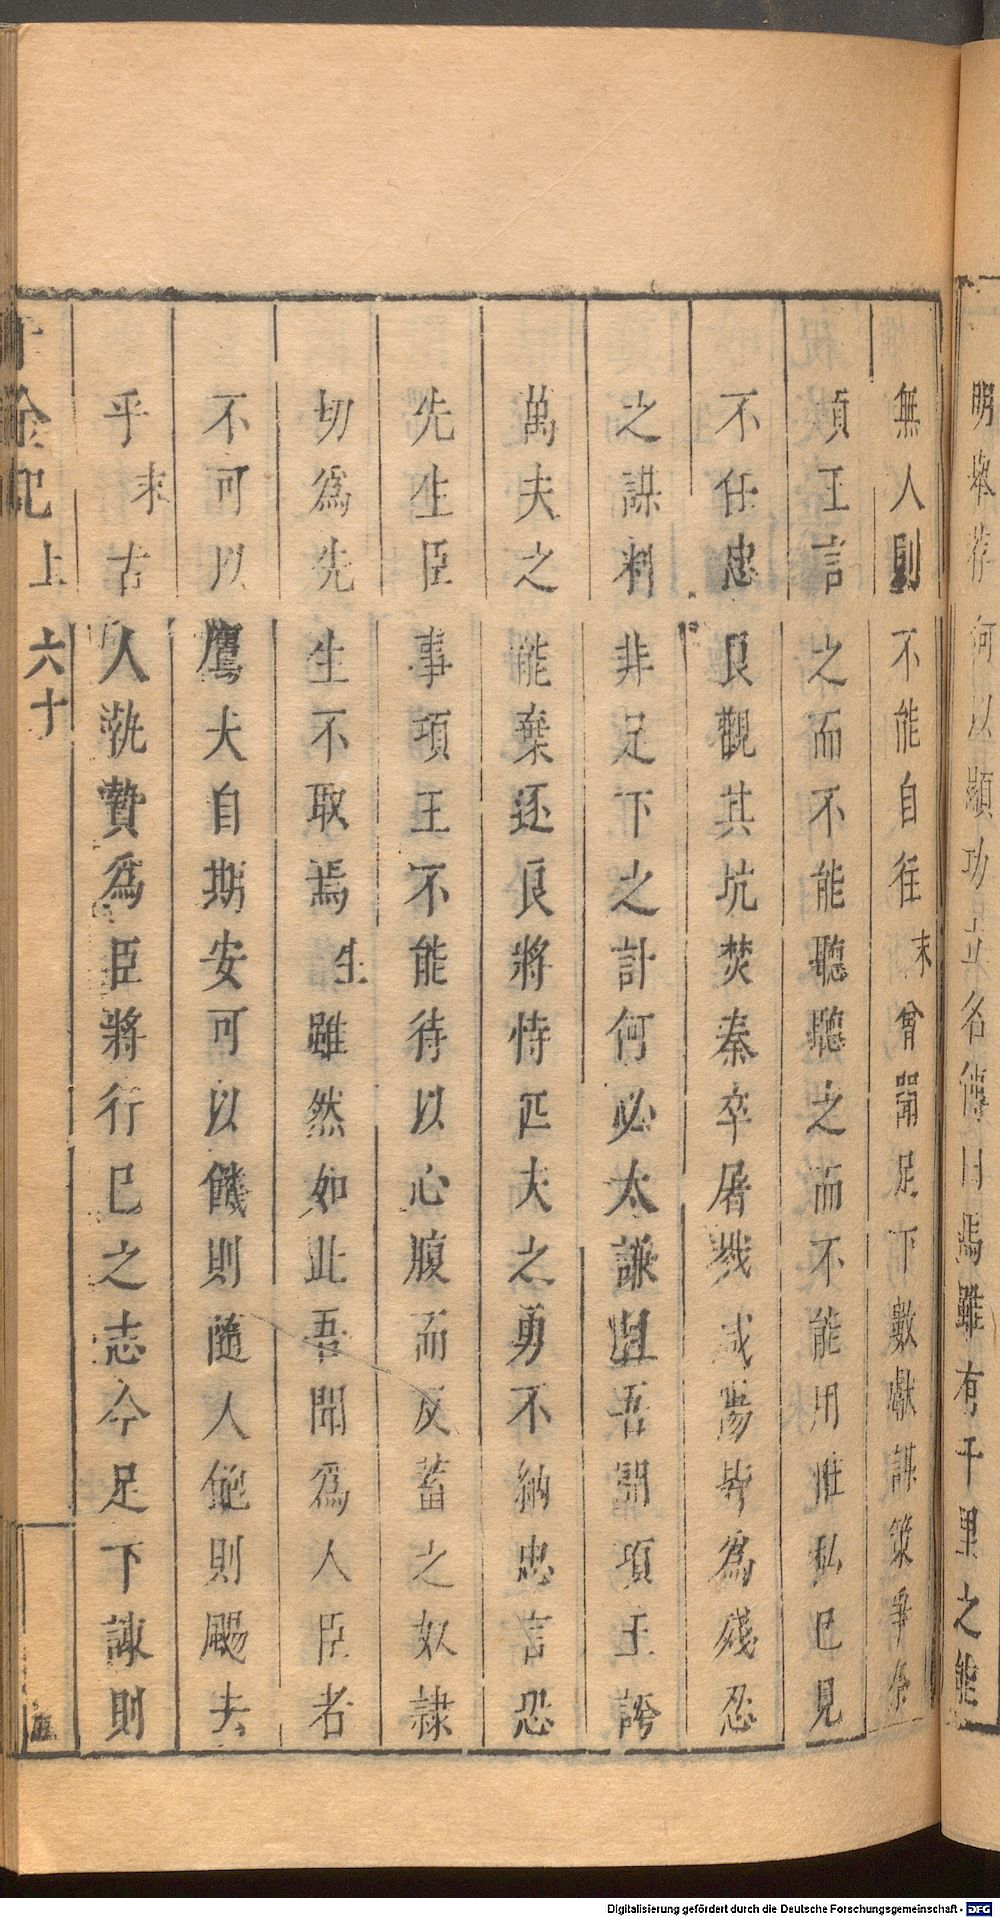 明舉荐何以顯功立名傳曰焉雖有千里之能
無人則不能自往末曾聞足下數獻謀策爭奈
項王言之而不能聽聽之而不能用惟私已見
不任忠良觀其坑焚秦卒屠戮咸陽皆爲殘忍
之謀料非足下之計何必太謙且吾聞項王誇
萬夫之能棄逐良將恃匹夫之勇不納忠言恐
先生臣事項王不能待以心腹而反蓄之奴隷
切爲先生不取焉生雖然如此吾聞爲人臣者
不可以鷹犬自期安可以饑則隨人飽則颺去
乎末古人執贄爲臣將行已之志今足下諫則
千金記上 六十
Digitalisierung gefördert durch die Deutsche Forschungsgemeinschaft - DFG